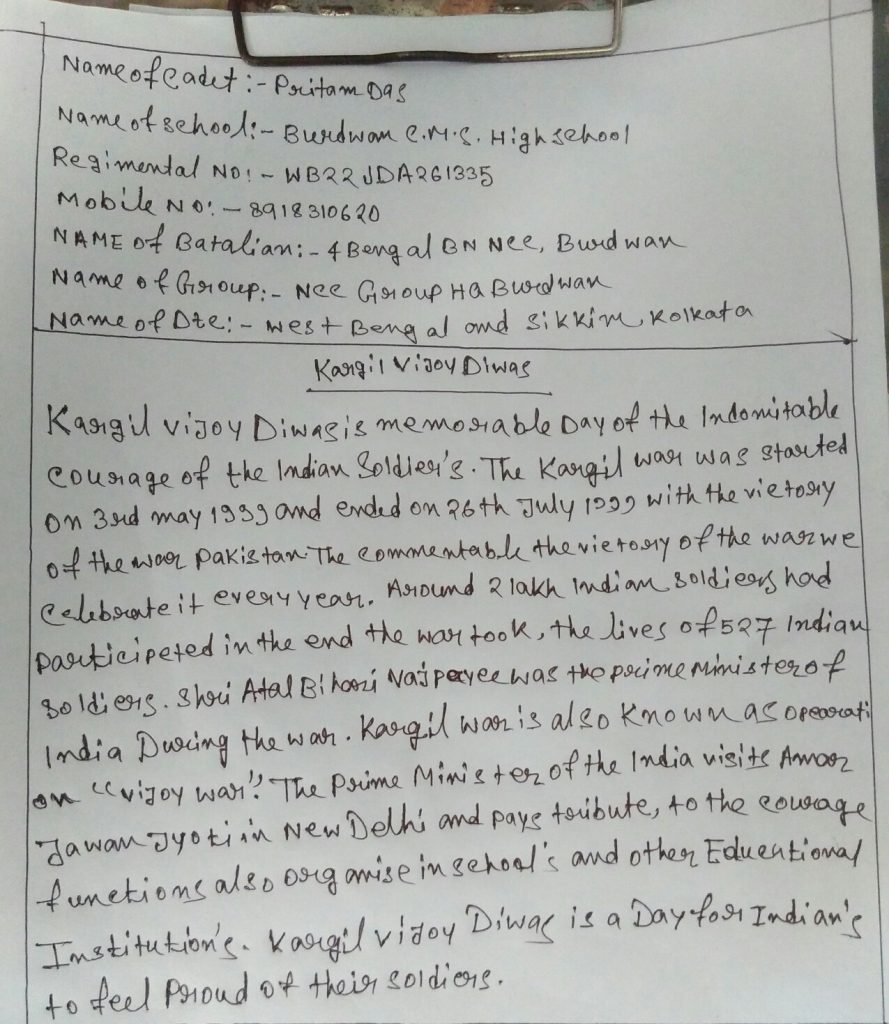 Name of Cadet :- Pritam Das
Name of School:- Burdwan C.M.S. High School
Regimental No: - WB22JDA261335
Mobile No: - 8918310620
NAME of Batalian: - 4 Bengal BN Ncc, Burdwan
Name of Group:- Ncc Group HQ Burdwan
Name of Dte: - West Bengal and Sikkim, Kolkata
Kargil Vijoy Diwas
Kargil Vijoy Diwas is memorable Day of the Indomitable
Courage of the Indian Soldier's. The Kargil war was started
on 3rd may 1999 and ended on 26th July 1999 with the victory
of the war Pakistan. The commentable the victory of the war we
Celebrate it every year. Around 2 lakh Indian soldiers had
participeted in the end the war took, the lives of 527 Indian
Soldiers. Shri Atal Bihari Vajpayee was the prime Minister of
India During the war. Kargil war is also Known as opearati
on "vijoy war". The Prime Minister of the India visits Amar
Jawan Jyoti in New Delhi and pays tribute, to the courage
functions also organise in school's and other Educational
Institution's. Kargil vijoy Diwas is a Day for Indian's
to feel Proud of their soldiers.